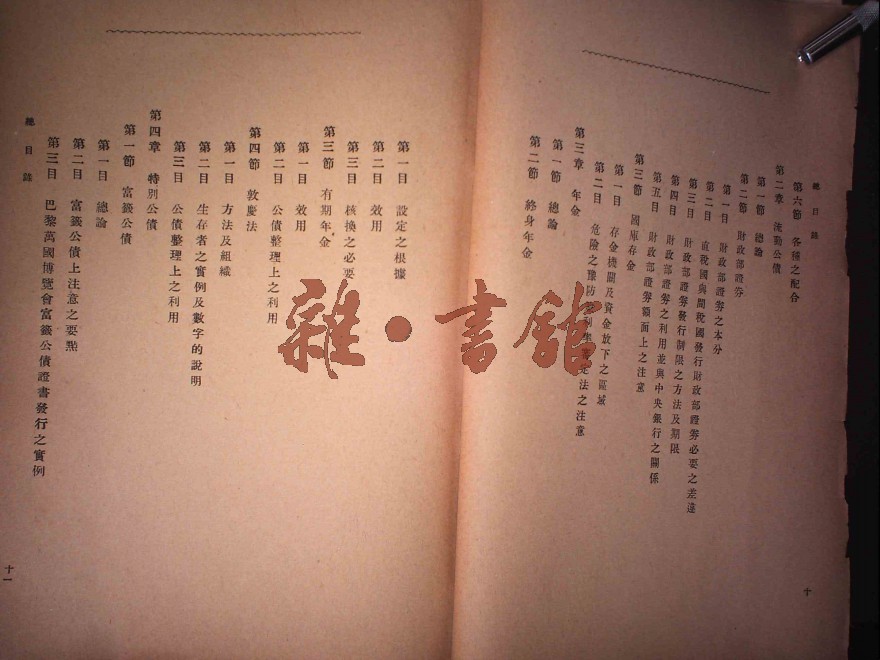 總目錄
第六節 各種之配合
第二章 流動公債
第一節 總論
第二節 財政部證券
第一目 財政部證券之本分
第二目 直稅國與間稅國發行財政部證券必要之差違
第三目 財政部證券發行制限之方法及期限
第四目 財政部證券之利用並與中央銀行之關係
第五目 財政部證券額面上之注意
第三節 國庫存金
第一目 存金機關及資金放下之區域
第二目 危險之豫防 法之注意
第三章 年金
第一節 總論
第二節 終身年金
十
第一目 設定之根據
第二目 效用
第三目 核換之必要
第三節 有期年金
第一目 效用
第二目 公債整理上之利用
第四節 敦慶法
第一目 方法及組織
第二目 生存者之實例及數字的說明
第三目 公債整理上之利用
第四章 特別公債
第一節 富籤公債
第一目 總論
第二目 富籤公債上注意之要點
第三目 巴黎萬國博覽會富籤公債證書發行之實例
總目錄
十一
雜·書館